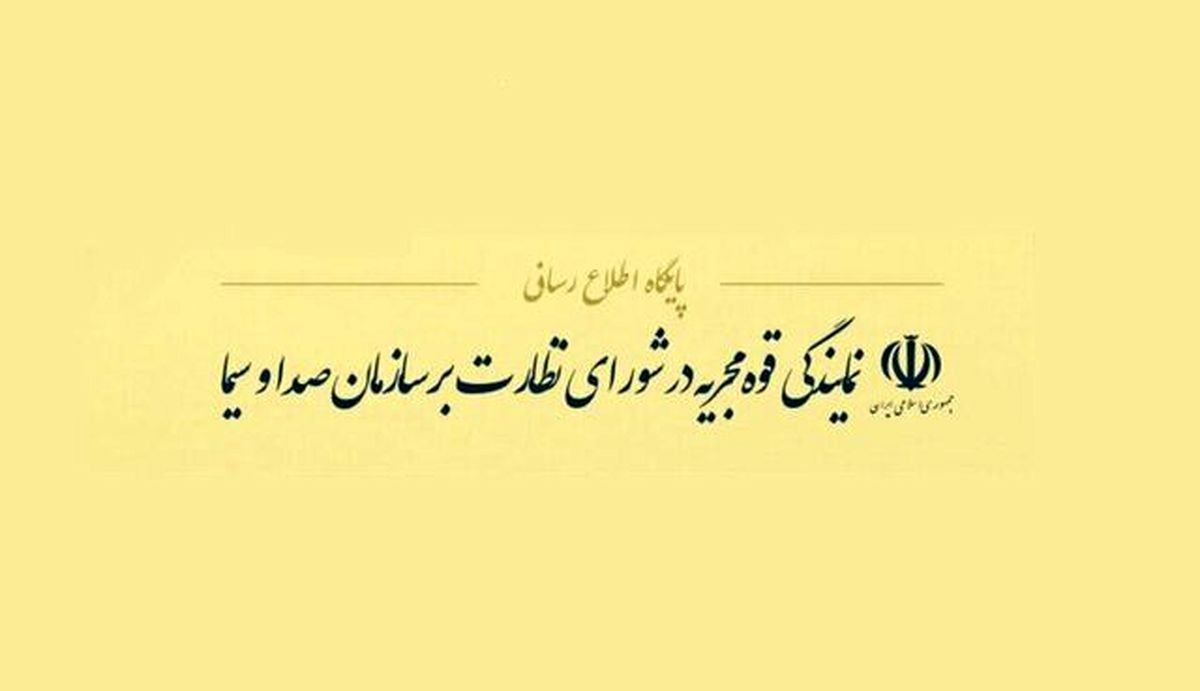 پایگاه اطلاع رسانی
نمایندگی قوه مجریه در شورای نظارت بر سازمان صدا و سیما
جمهوری اسلامی ایران